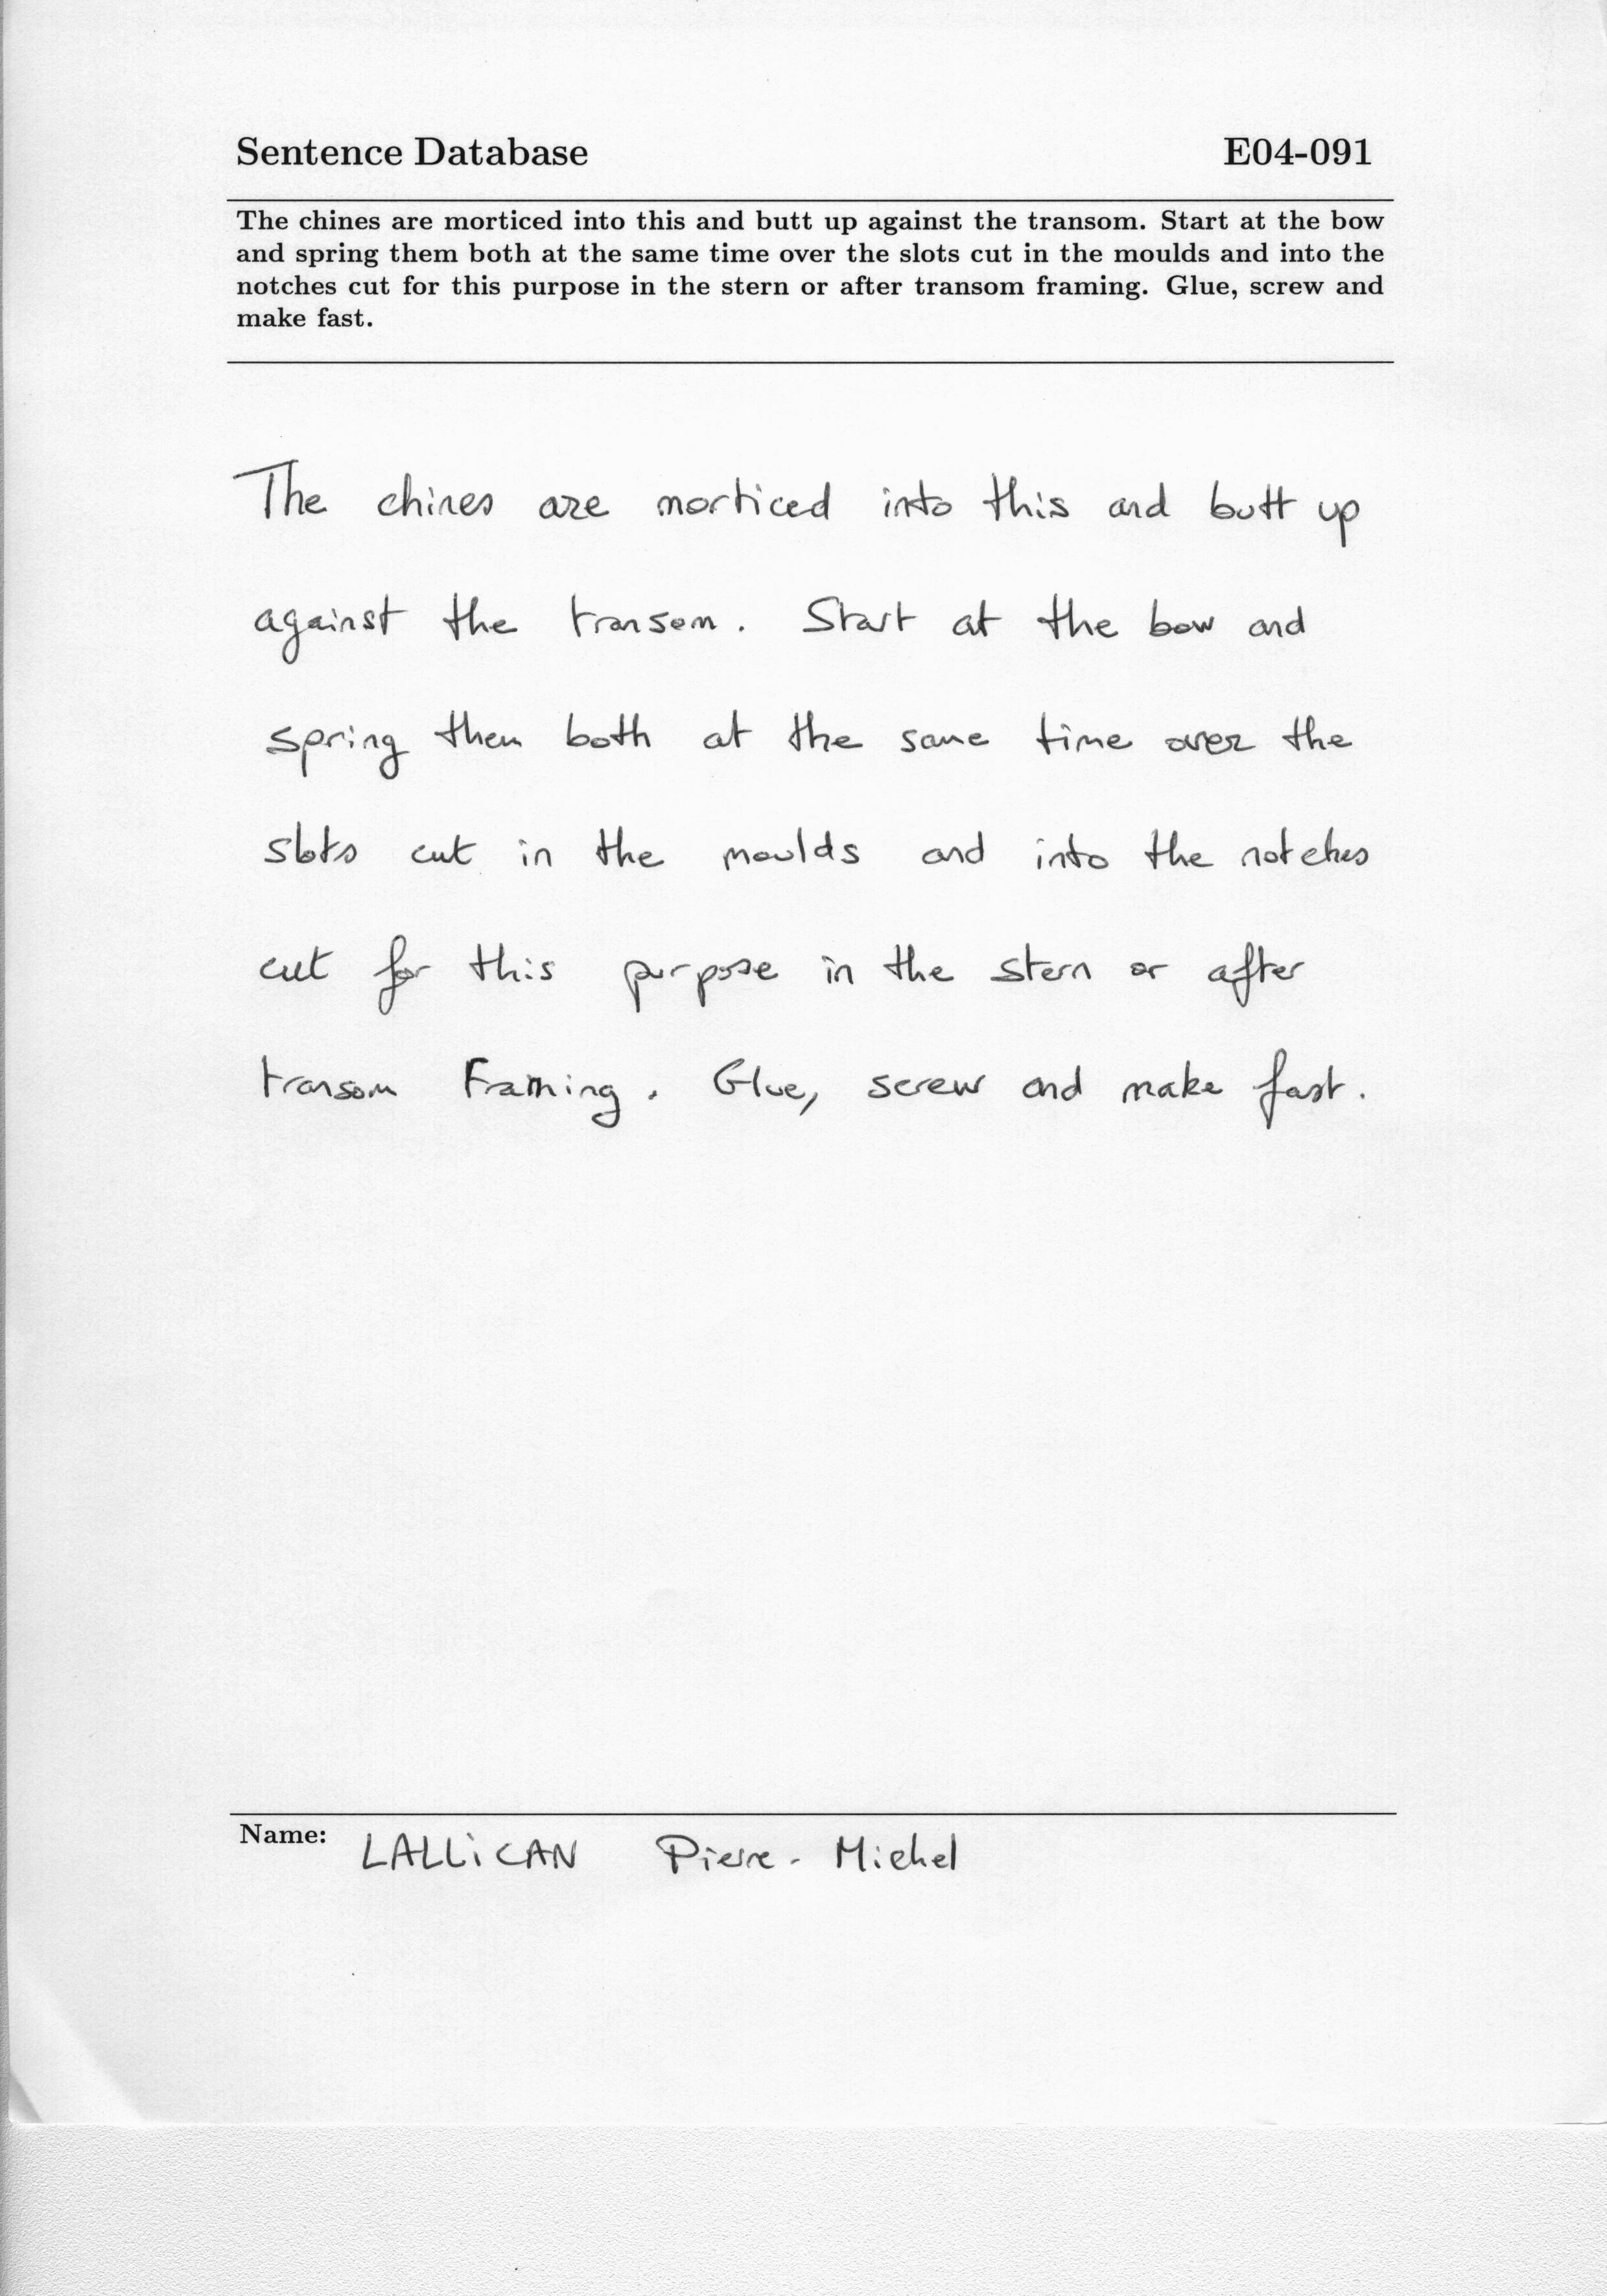 Sentence Database E04-091
The chines are morticed into this and butt up against the transom. Start at the bow
and spring them both at the same time over the slots cut in the moulds and into the
notches cut for this purpose in the stern or after transom framing. Glue, screw and
make fast.
The chines are morticed into this and butt up
against the transom. Start at the bow and
spring them both at the same time over the
slots cut in the moulds and into the notches
cut for this purpose in the stern or after
transom Framing. Glue, screw and make fast.
Name: LALLiCAN Pierre-Michel